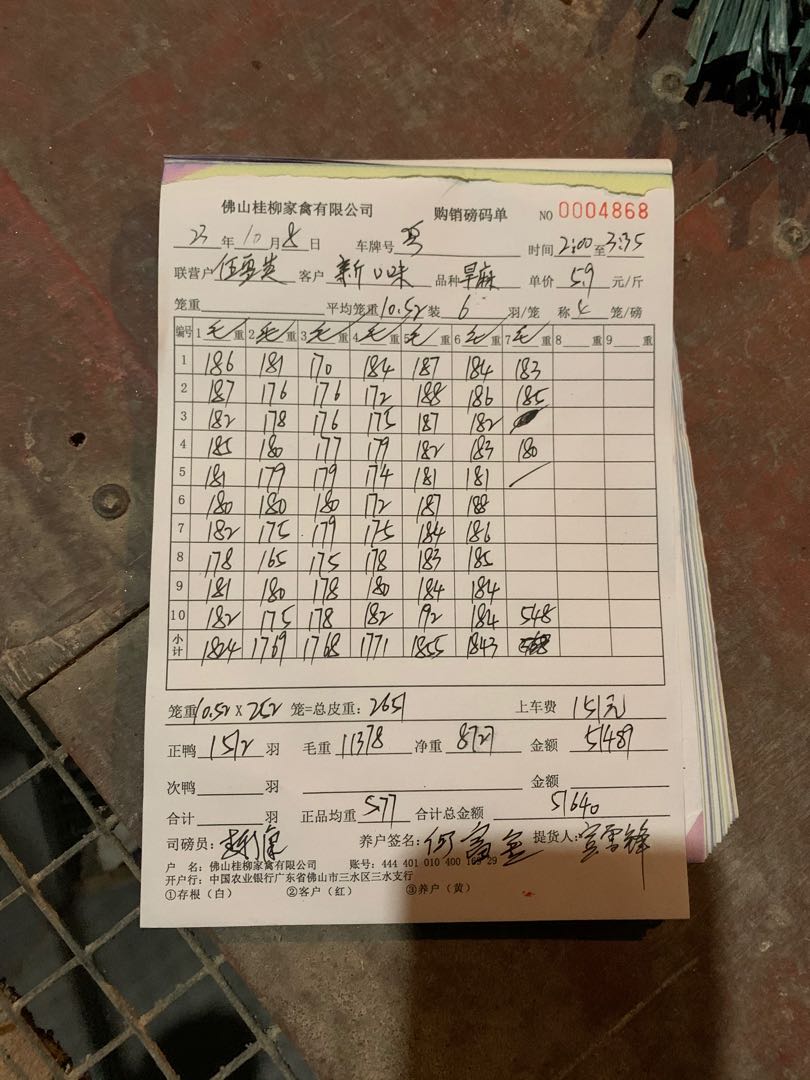 佛山桂柳家禽有限公司 购销磅码单 NO 0004868
23 年 10 月 8 日 车牌号 时间 2:00 至 3:35
联营户 伍雪英 客户 新口味 品种 旱麻 单价 5.9 元/斤
笼重 平均笼重 10.52 装 6 羽/笼 称 4 笼/磅
编号 1 毛 重 2 毛 重 3 毛 重 4 毛 重 5 毛 重 6 毛 重 7 毛 重 8 重 9 重
1 186 181 170 184 187 184 183
2 187 176 176 172 188 186 185
3 182 178 176 175 187 182
4 185 180 177 179 182 183 180
5 181 179 179 174 181 181
6 180 180 180 172 187 188
7 182 175 179 175 184 186
8 178 165 175 178 183 185
9 181 180 178 180 184 184
10 182 175 178 182 192 184 548
小计 1824 1769 1768 1771 1855 1843
笼重 10.52 X 252 笼=总皮重: 2651 上车费 151元
正鸭 1512 羽 毛重 11378 净重 8727 金额 51489
次鸭 羽 金额
合计 羽 正品均重 5.77 合计总金额 51640
司磅员: 养户签名: 何富金 提货人:
户 名: 佛山桂柳家禽有限公司 账号: 444 401 010 400 29
开户行: 中国农业银行广东省佛山市三水区三水支行
①存根(白) ②客户(红) ③养户(黄)